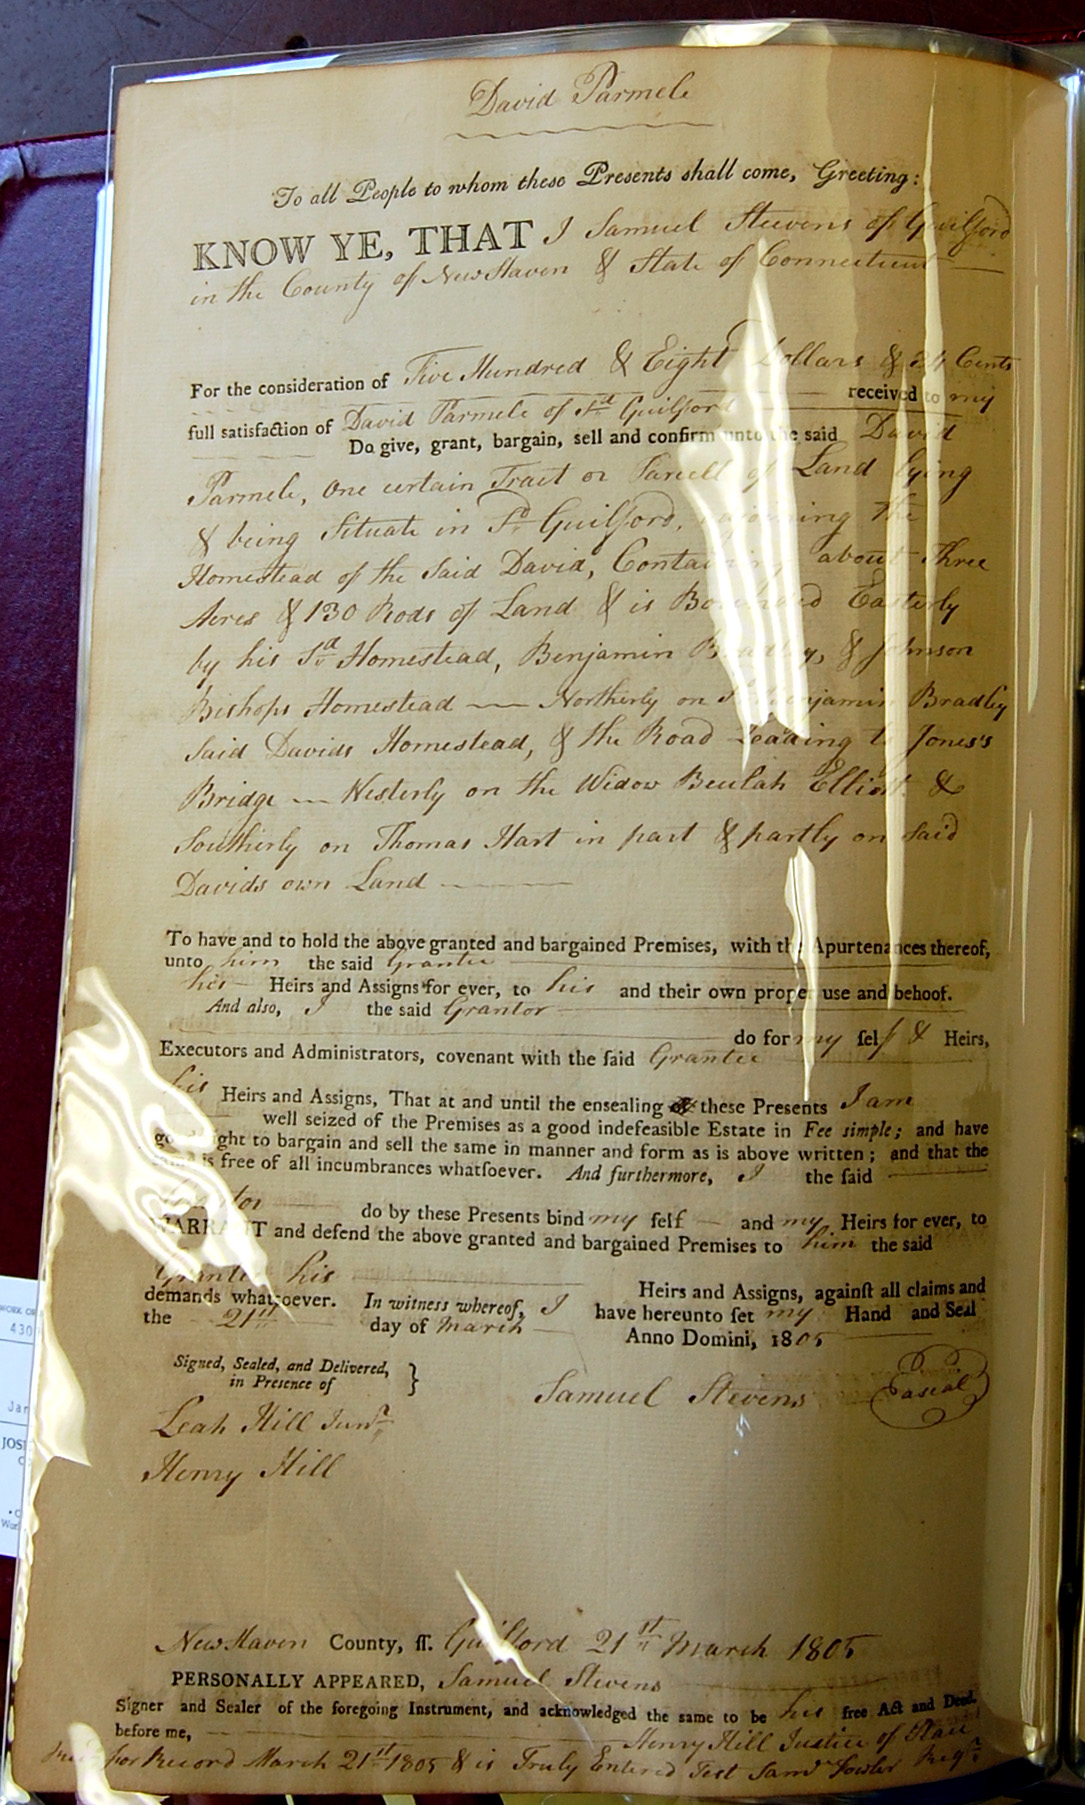 David Parmele
To all People to whom these Presents shall come, Greeting:
KNOW YE, THAT I Samuel Steevens of Guilford
in the County of New Haven & State of Connecticut
For the consideration of Five Hundred & Eight Dollars & 34 Cents
received to my
full satisfaction of David Parmele of Sd Guilford
Do give, grant, bargain, sell and confirm unto the said David
Parmele, One certain Tract or Parcell of Land lying
& being Situate in Sd Guilford, ajoining the
Homestead of the Said David, Containing about Three
Acres & 130 Rods of Land & is Bounded Easterly
by his Sd Homestead, Benjamin Bradley, & Johnson
Bishops Homestead — Northerly on Sd Benjamin Bradley
Said Davids Homestead, & the Road Leading to Jones's
Bridge — Westerly on the Widow Beulah Elliott &
Southerly on Thomas Hart in part & partly on Said
Davids own Land
To have and to hold the above granted and bargained Premises, with the Apurtenances thereof,
unto him the said Grantee
his Heirs and Assigns for ever, to his and their own proper use and behoof.
And also, I the said Grantor
do for my self & Heirs,
Executors and Administrators, covenant with the said Grantee
his Heirs and Assigns, That at and until the ensealing of these Presents I am
well seized of the Premises as a good indefeasible Estate in Fee simple; and have
good right to bargain and sell the same in manner and form as is above written; and that the
same is free of all incumbrances whatsoever. And furthermore, I the said
Grantor do by these Presents bind my self and my Heirs for ever, to
WARRANT and defend the above granted and bargained Premises to him the said
Grantee his Heirs and Assigns, against all claims and
demands whatsoever. In witness whereof, I have hereunto set my Hand and Seal
the 21st day of March Anno Domini, 1805
Signed, Sealed, and Delivered,
in Presence of }
Samuel Stevens
Leah Hill Junr
Henry Hill
New Haven County, ss. Guilford 21st March 1805
PERSONALLY APPEARED, Samuel Stevens
Signer and Sealer of the foregoing Instrument, and acknowledged the same to be his free Act and Deed.
before me, Henry Hill Justice of Peace
for Record March 21st 1805 & is Truly Entered Test Saml Fowler Regr